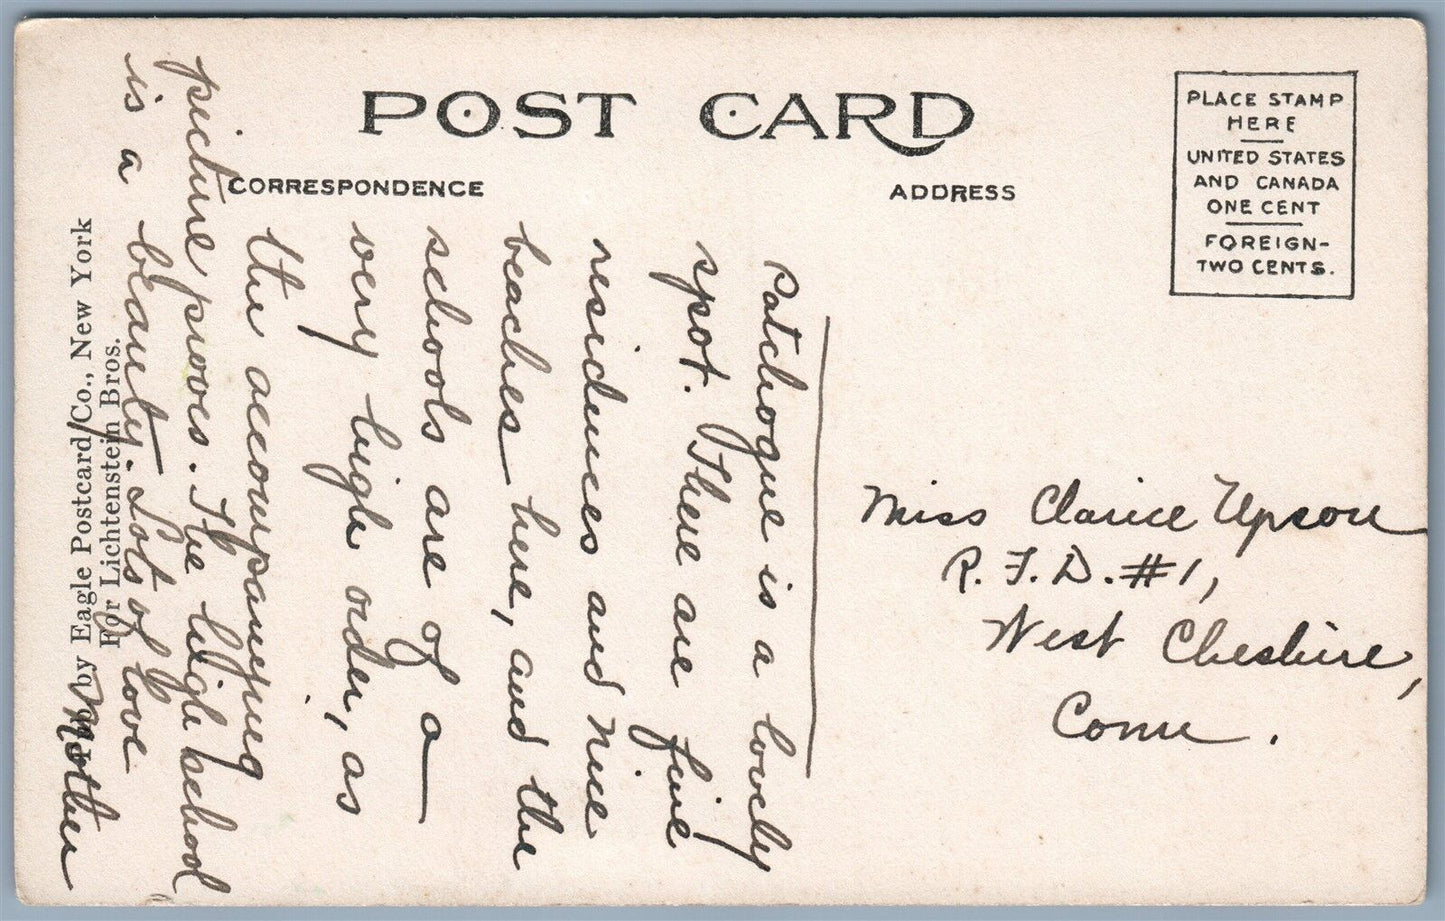 POST CARD
CORRESPONDENCE
ADDRESS
PLACE STAMP
HERE
UNITED STATES
AND CANADA
ONE CENT
FOREIGN-
TWO CENTS.
Patchogue is a lovely
spot. There are fine
residences and nice
beaches here, and the
schools are of a
very high order, as
the accompanying
picture proves. The high school
is a beauty. Lots of love
Mother
Miss Clarice Upson
R.F.D. #1,
West Cheshire,
Conn.
Pub by Eagle Postcard Co., New York
For Lichtenstein Bros.